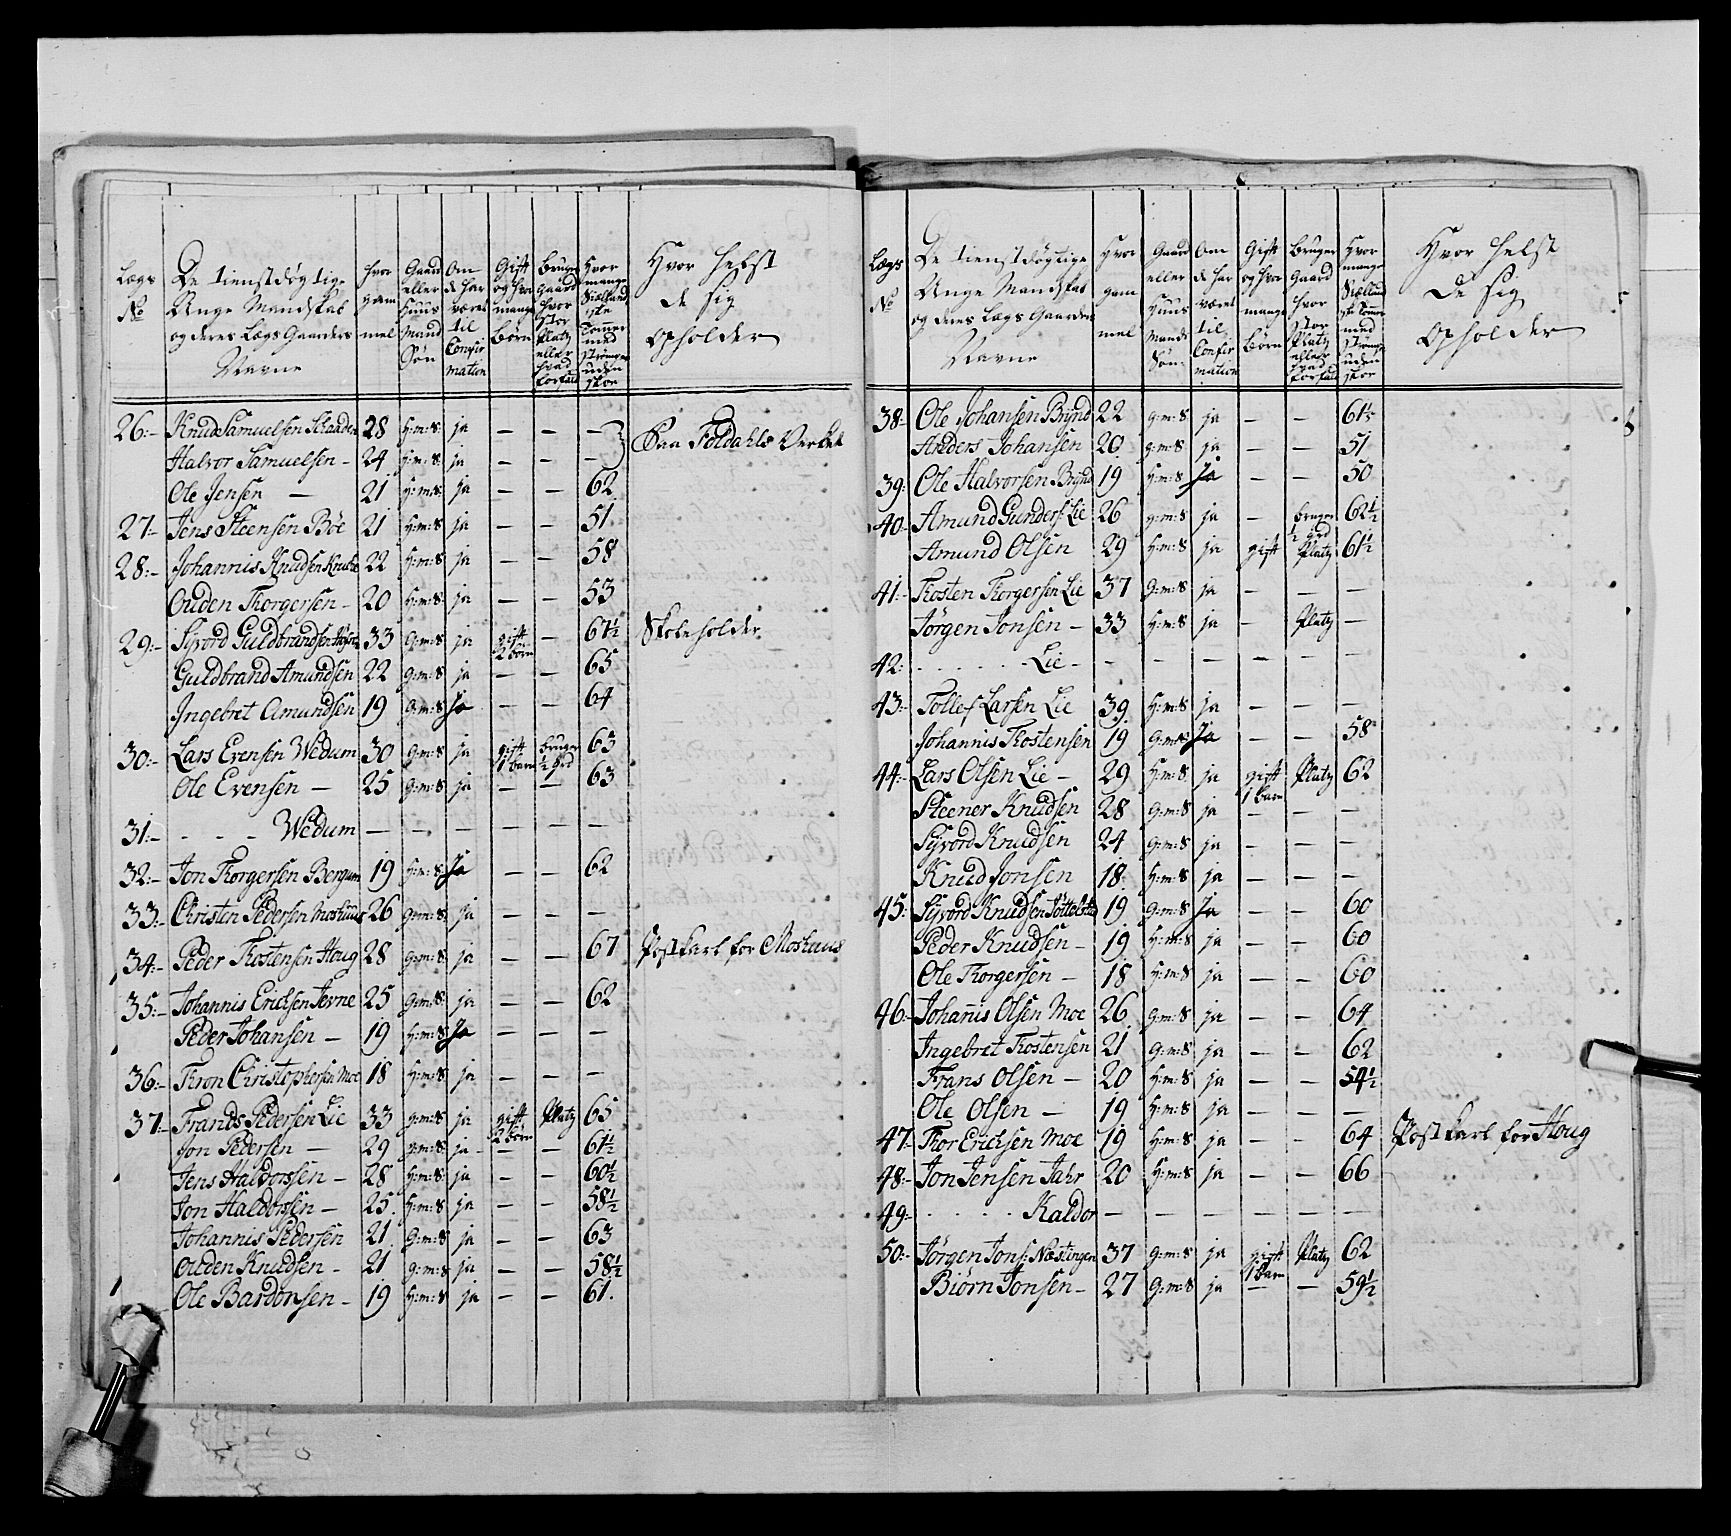 Lægs No | De tienstdøgtige Unge Mandskab og deres Lægs Gaarders Navne | hvor gammel | Gaard eller Huus Mand Søn | Om de har været til Confirmation | Gift og hvor mange Børn | Bruger Gaard hvor Stor Platz eller hvad forfald | Hvor mange Siællandske Tomer med Strømper uden skoe | Hvor helst de sig opholder
26:- Knud Samuelsen 28 H:m:S ja — — — Paa Foldahls Verket
Halvor Samuelsen - 24 H:m:S ja — — —
Ole Jensen — 21 H:m:S ja — — 62
27- Jens Steensen Böe 21 H:m:S ja — — 51
28:- Johannis Knudsen 22 H:m:S ja — — 58
Ouden Thorgersen - 20 H:m:S ja — — 53
29:- Sivord Guldbrandsen 33 G:m:S ja gift 2 börn — 67½ Skoleholder
Guldbrand Amundsen 22 G:m:S ja — — 65
Ingebret Amundsen 19 G:m:S Ja — — 64
30:- Lars Evensen Wedum 30 G:m:S ja gift 1 barn bruger ½ grd 63
Ole Evensen — 25 G:m:S ja — — 63
31:- - - - Wedum — — — — — —
32:- Jon Thorgersen Bergum 19 H:m:S Ja — — 62
33:- Christen Pedersen Moshuus 26 G:m:S ja — — —
34:- Peder Thostensen Houg 28 G:m:S ja — — 67 Postkarl for Moshuus
35:- Johannis Erichsen Jevne 25 G:m:S ja — — 62
Peder Johansen — 19 H:m:S Ja — — —
36:- Thron Christophersen Moe 18 H:m:S ja — — —
37- Frands Pedersen Lie 33 G:m:S ja gift 2 börn Platz 65
Jon Pedersen — 29 G:m:S ja - — — 61½
Jens Haldorssen - 28 H:m:S ja — — 60½
Jon Haldorssen — 25. H:m:S ja — — 58½
Johannis Pedersen 21 G:m:S ja — — 63
Ouden Knudsen - 21 G:m:S ja — — 58½
Ole Bardonsen - 19 H:m:S ja — — 61.
Lægs No | De tienstdøgtige Unge Mandskab og deres Lægs Gaarders Navne | Hvor gammel | Gaard eller Huus Mands Søn | Om de har været til Confirmation | Gift og hvor mange Börn | Bruger Gaard hvor Stor Platz eller hvad forfald | Hvor mange Siællandske Tomer med Strömper uden skoe | Hvor helst de sig opholder
38- Ole Johansen Brÿnd 22 G:m:S ja — — 61½
Anders Johansen 20 G:m:S ja — — 51
39: Ole Halvorsen Brÿnd 19 H:m:S Ja — — 50
40- Amund Gunders: Lie 26 G:m:S ja — bruger ½ grd 62½
Amund Olsen 29 H:m:S ja gift Platz 61½
41:- Thosten Thorgersen Lie 37 G:m:S ja — — —
Jörgen Jonsen - 33 H:m:S ja — Platz —
42: . . . . . . Lie - - — — — — —
43:- Tollef Larsen Lie 39 H:m:S ja — — —
Johannis Thostensen 19 G:m:S Ja — — 58
44:- Lars Olsen Lie - 29 H:m:S ja gift 1 barn Platz 62
Steener Knudsen 28 G:m:S ja — — —
Sivord Knudsen 24 G:m:S ja — — —
Knud Jonsen 18 H:m:S ja — — —
45: Sivord Knudsen 19 G:m:S Ja — — 60
Peder Knudsen - 19 H:m:S ja — — 60
Ole Thorgersen - 18 H:m:S ja — — 60
46:- Johañis Olsen Moe 26 G:m:S ja — — 64
Ingebret Thostensen 21 G:m:S ja — — 62
Frans Olsen — 20 H:m:S ja — — 54½
Ole Olsen — 19 H:m:S ja — — —
47- Thor Erichsen Moe 19 H:m:S ja — — 64 Postkarl for Houg
48:- Jon Jensen Jahr 20 H:m:S ja — — 66
49:- . . . . . Kaldor — — — — — —
50:- Jörgen Jons: Næstingen 37 G:m:S ja gift 1 barn Platz 62
Biörn Jonsen - 27 G:m:S ja — — 59½